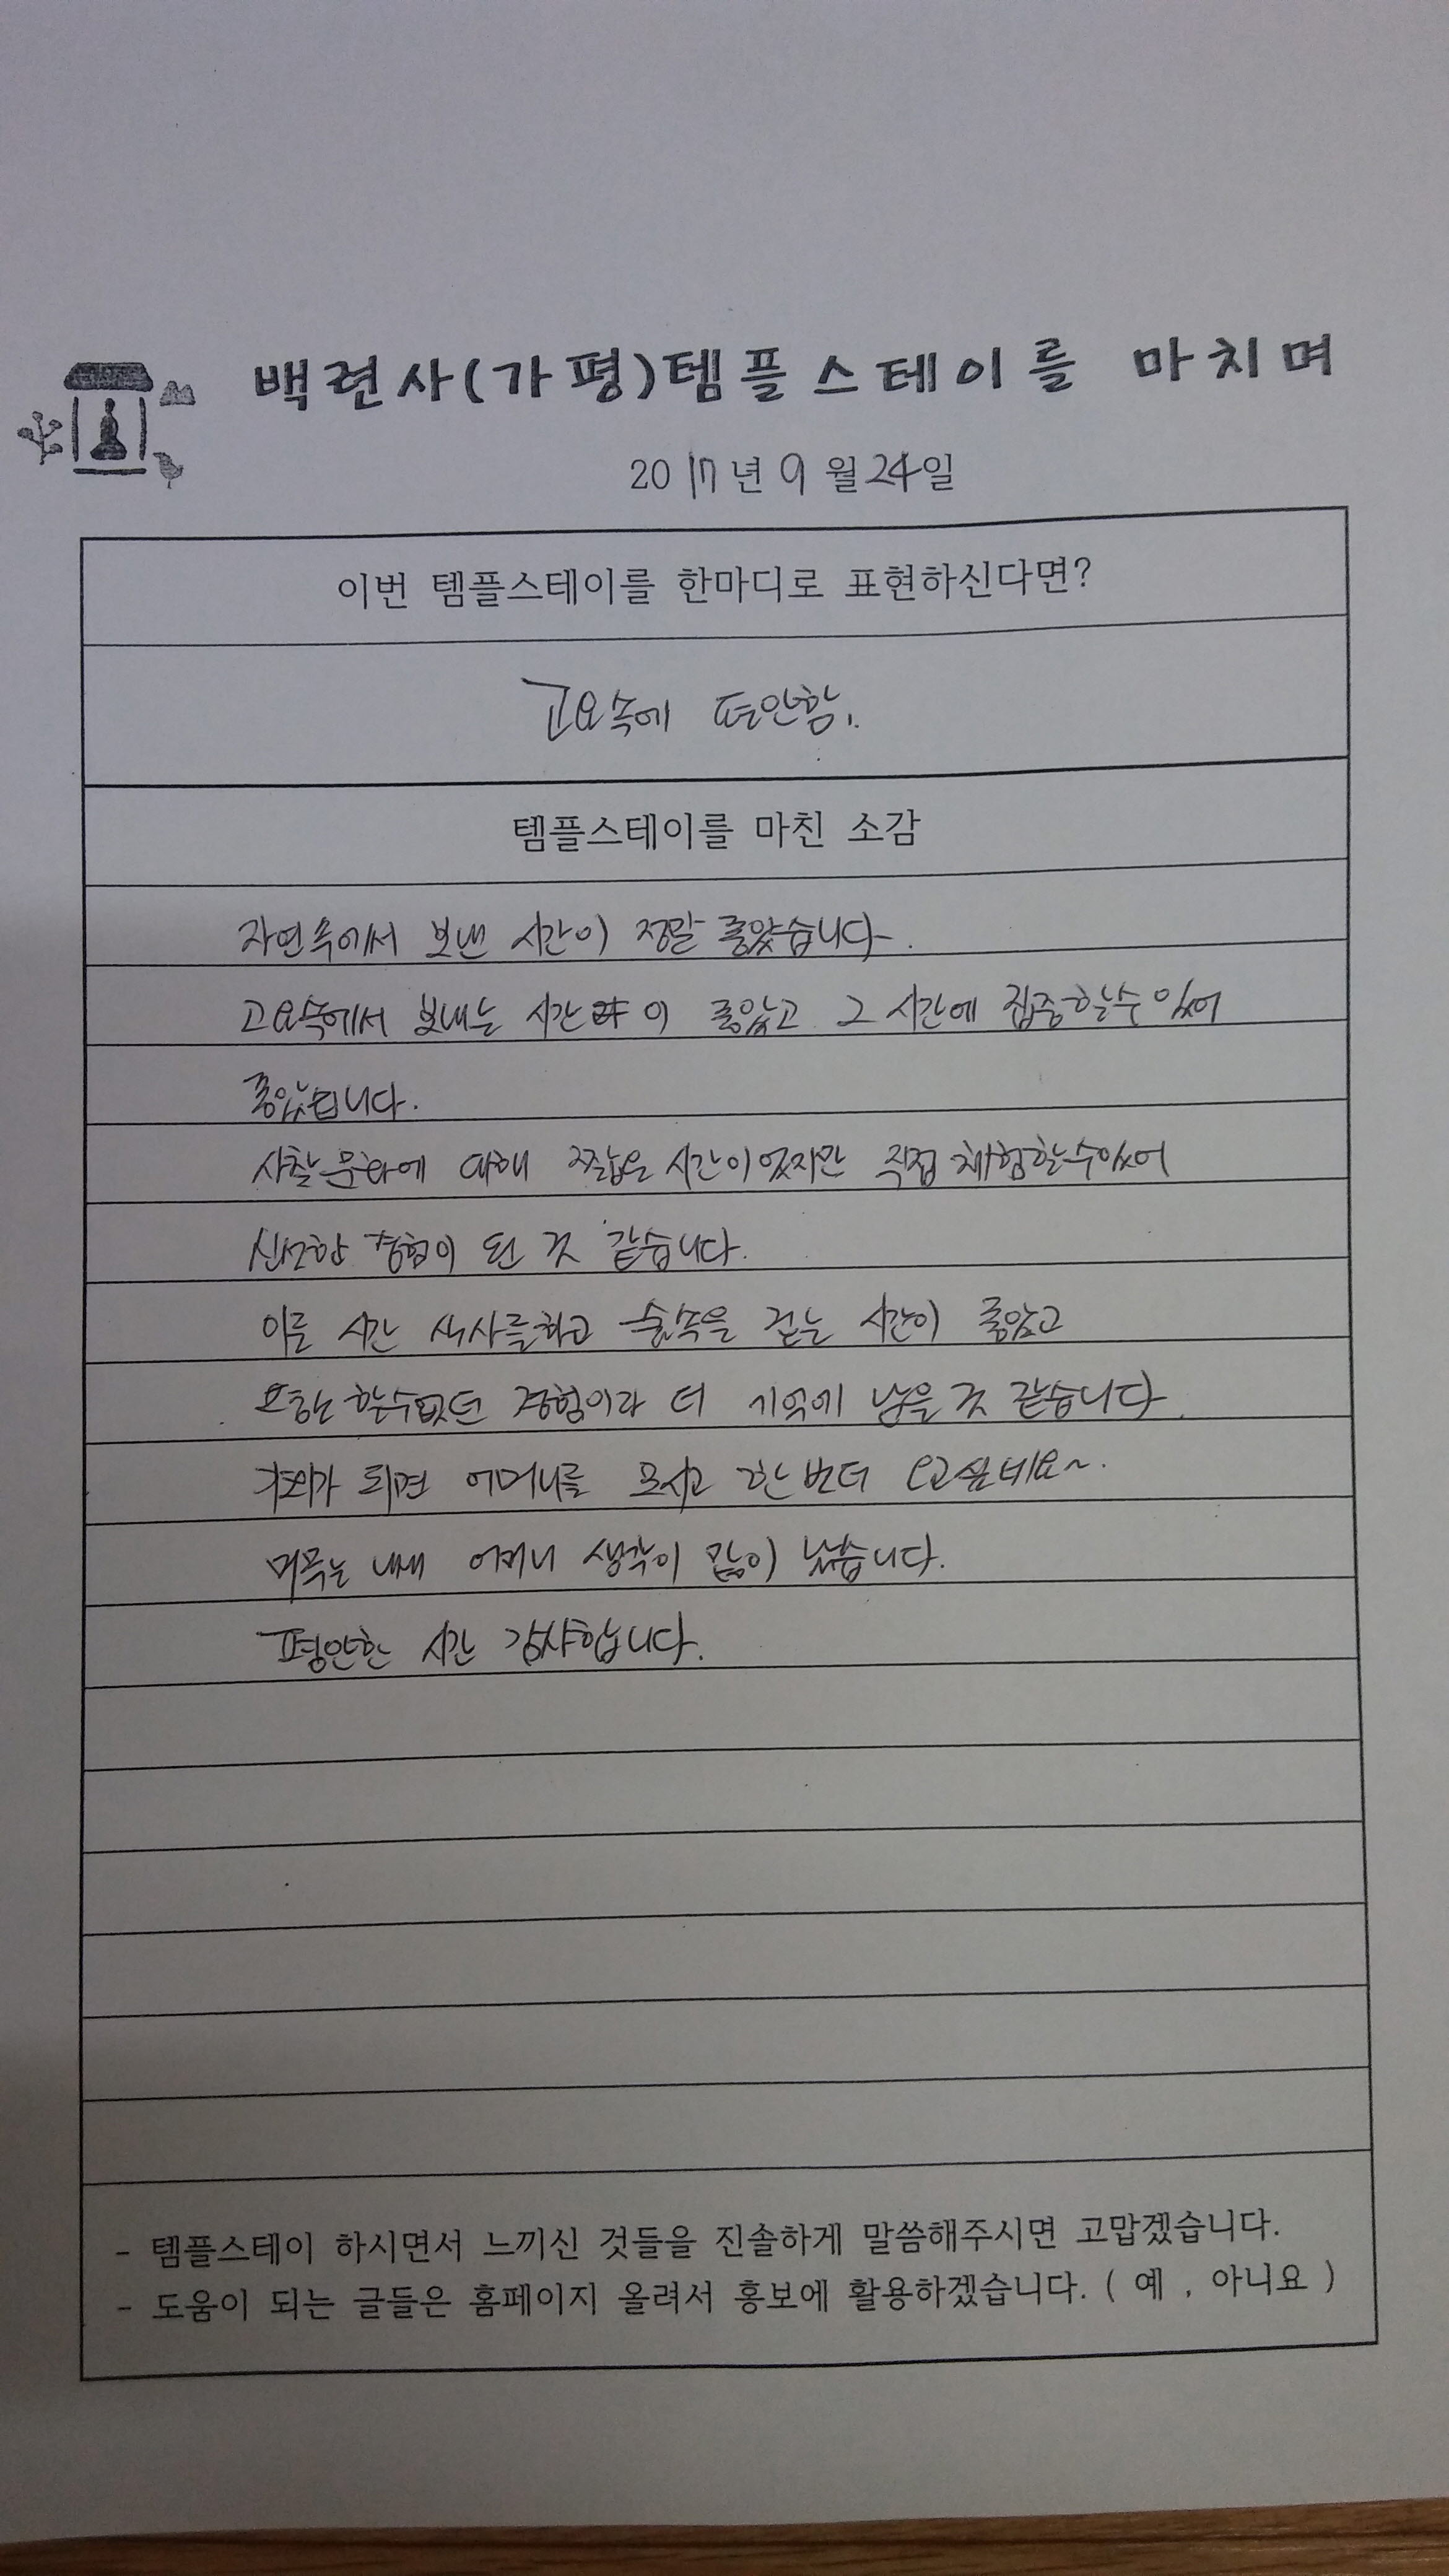 백련사(가평)템플스테이를 마치며
2017년 9월 24일
이번 템플스테이를 한마디로 표현하신다면?
고요속에 편안함.
템플스테이를 마친 소감
자연속에서 보낸 시간이 정말 좋았습니다.
고요속에서 보내는 시간이 좋았고 그 시간에 집중할수 있어
좋았습니다.
사찰문화에 대해 짧은 시간이었지만 직접 체험할수있어
신선한 경험이 된 것 같습니다.
이른 시간 식사를하고 숲속을 걷는 시간이 좋았고
흔히 할수없던 경험이라 더 기억에 남을 것 같습니다.
기회가 되면 어머니를 모시고 한번더 오고싶네요~.
머무는 내내 어머니 생각이 많이 났습니다.
평안한 시간 감사합니다.
- 템플스테이 하시면서 느끼신 것들을 진솔하게 말씀해주시면 고맙겠습니다.
- 도움이 되는 글들은 홈페이지 올려서 홍보에 활용하겠습니다. ( 예 , 아니요 )